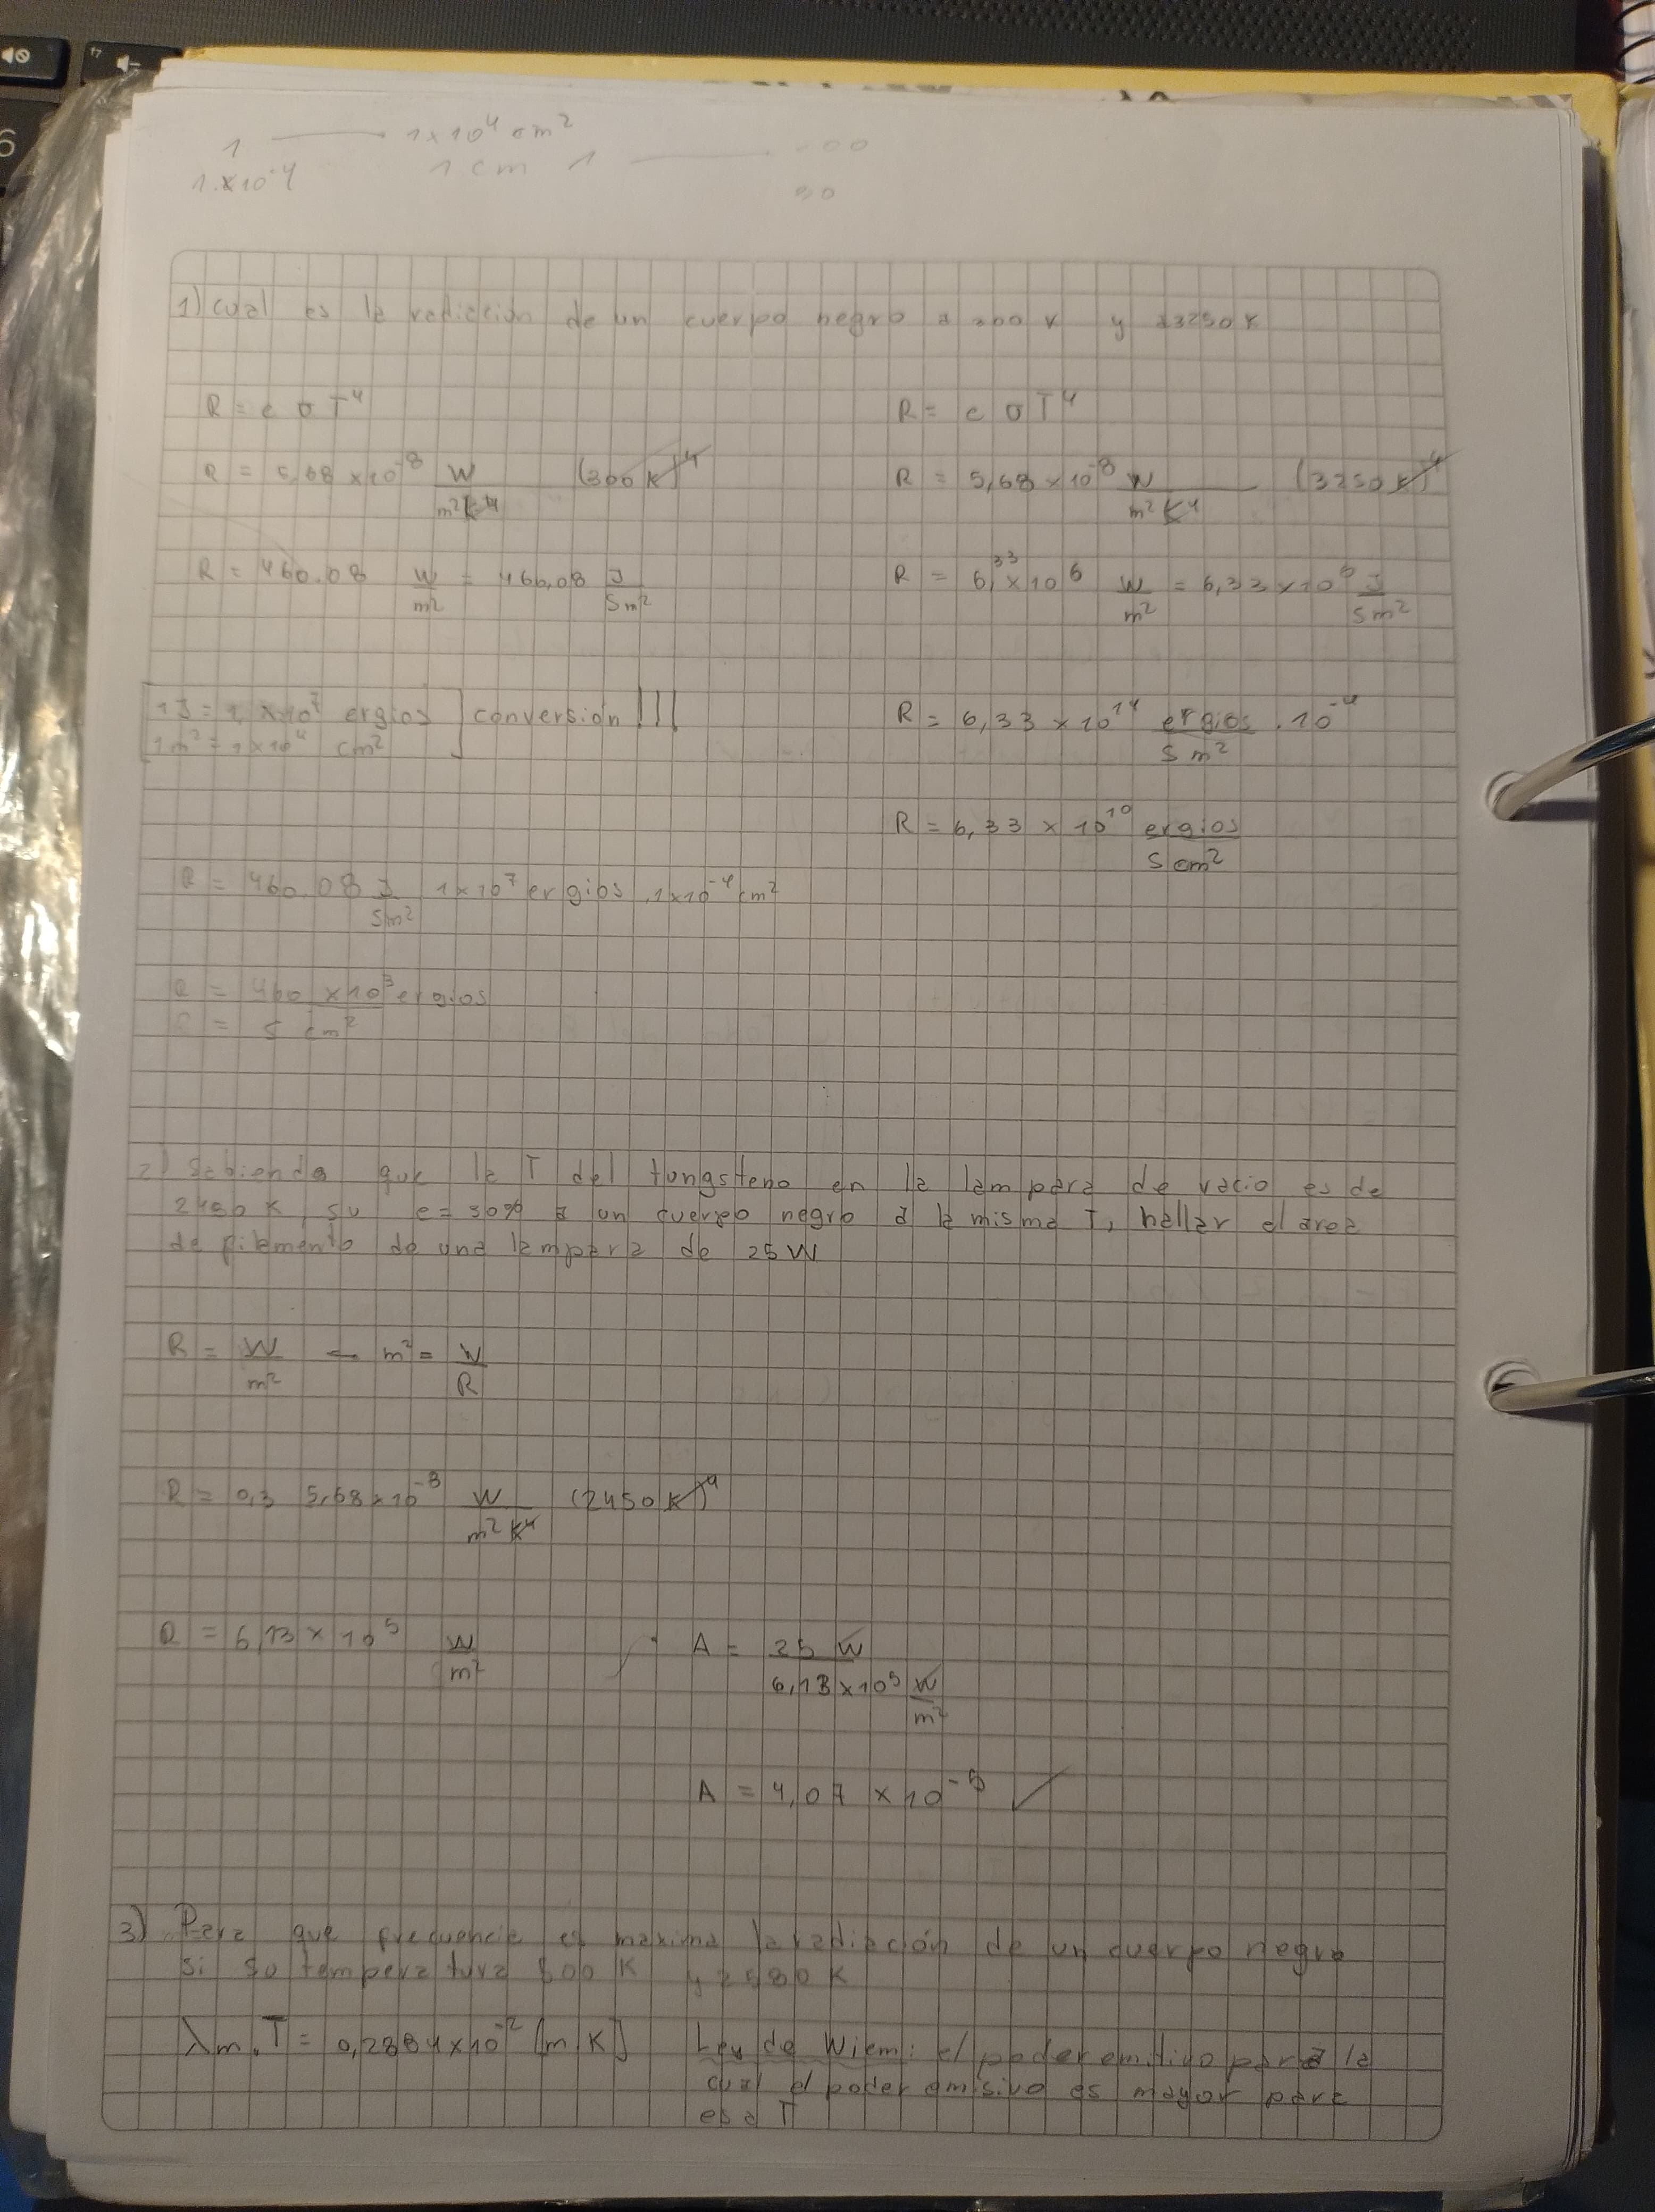 1 —— 1x10⁴ cm²
1.x10⁻⁴ 1 cm 1 ——
1) cual es la radiación de un cuerpo negro a 300 K y a 3250 K
R = e σ T⁴
R = 5,68 x 10⁻⁸ W/m²K⁴ (300 K)⁴
R = 460.08 W/m² = 460,08 J/Sm²
1J = 1,x10⁷ ergios
1m² = 1x10⁴ cm²
conversión !!!
R = 460.08 J/Sm² 1x10⁷ ergios . 1x10⁻⁴ cm²
R = 460 x10³ ergios
= S cm²
R = e σ T⁴
R = 5,68 x 10⁻⁸ W/m²K⁴ (3250 K)⁴
R = 6,33 x 10⁶ W/m² = 6,33 x 10⁶ J/Sm²
R = 6,33 x 10¹⁴ ergios/S m² . 10⁻⁴
R = 6,33 x 10¹⁰ ergios/S cm²
2) Sabiendo que la T del tungsteno en la lampara de vacio es de
2450 K, su e = 30% a un cuerpo negro a la misma T, hallar el area
de filamento de una lampara de 25 W
R = W/m² — m² = W/R
R = 0,3 5,68 x 10⁻⁸ W/m²K⁴ (2450 K)⁴
R = 6,13 x 10⁵ W/m²
A = 25 W / 6,13 x 10⁵ W/m²
A = 4,07 x 10⁻⁵ ✓
3) Para que frecuencia es maxima la radiación de un cuerpo negro
si su temperatura 300 K y 2580 K
λm.T = 0,2884x10⁻² [m K]
Ley de Wiem: el poder emitivo para la
cual el poder emisivo es mayor para
esa T